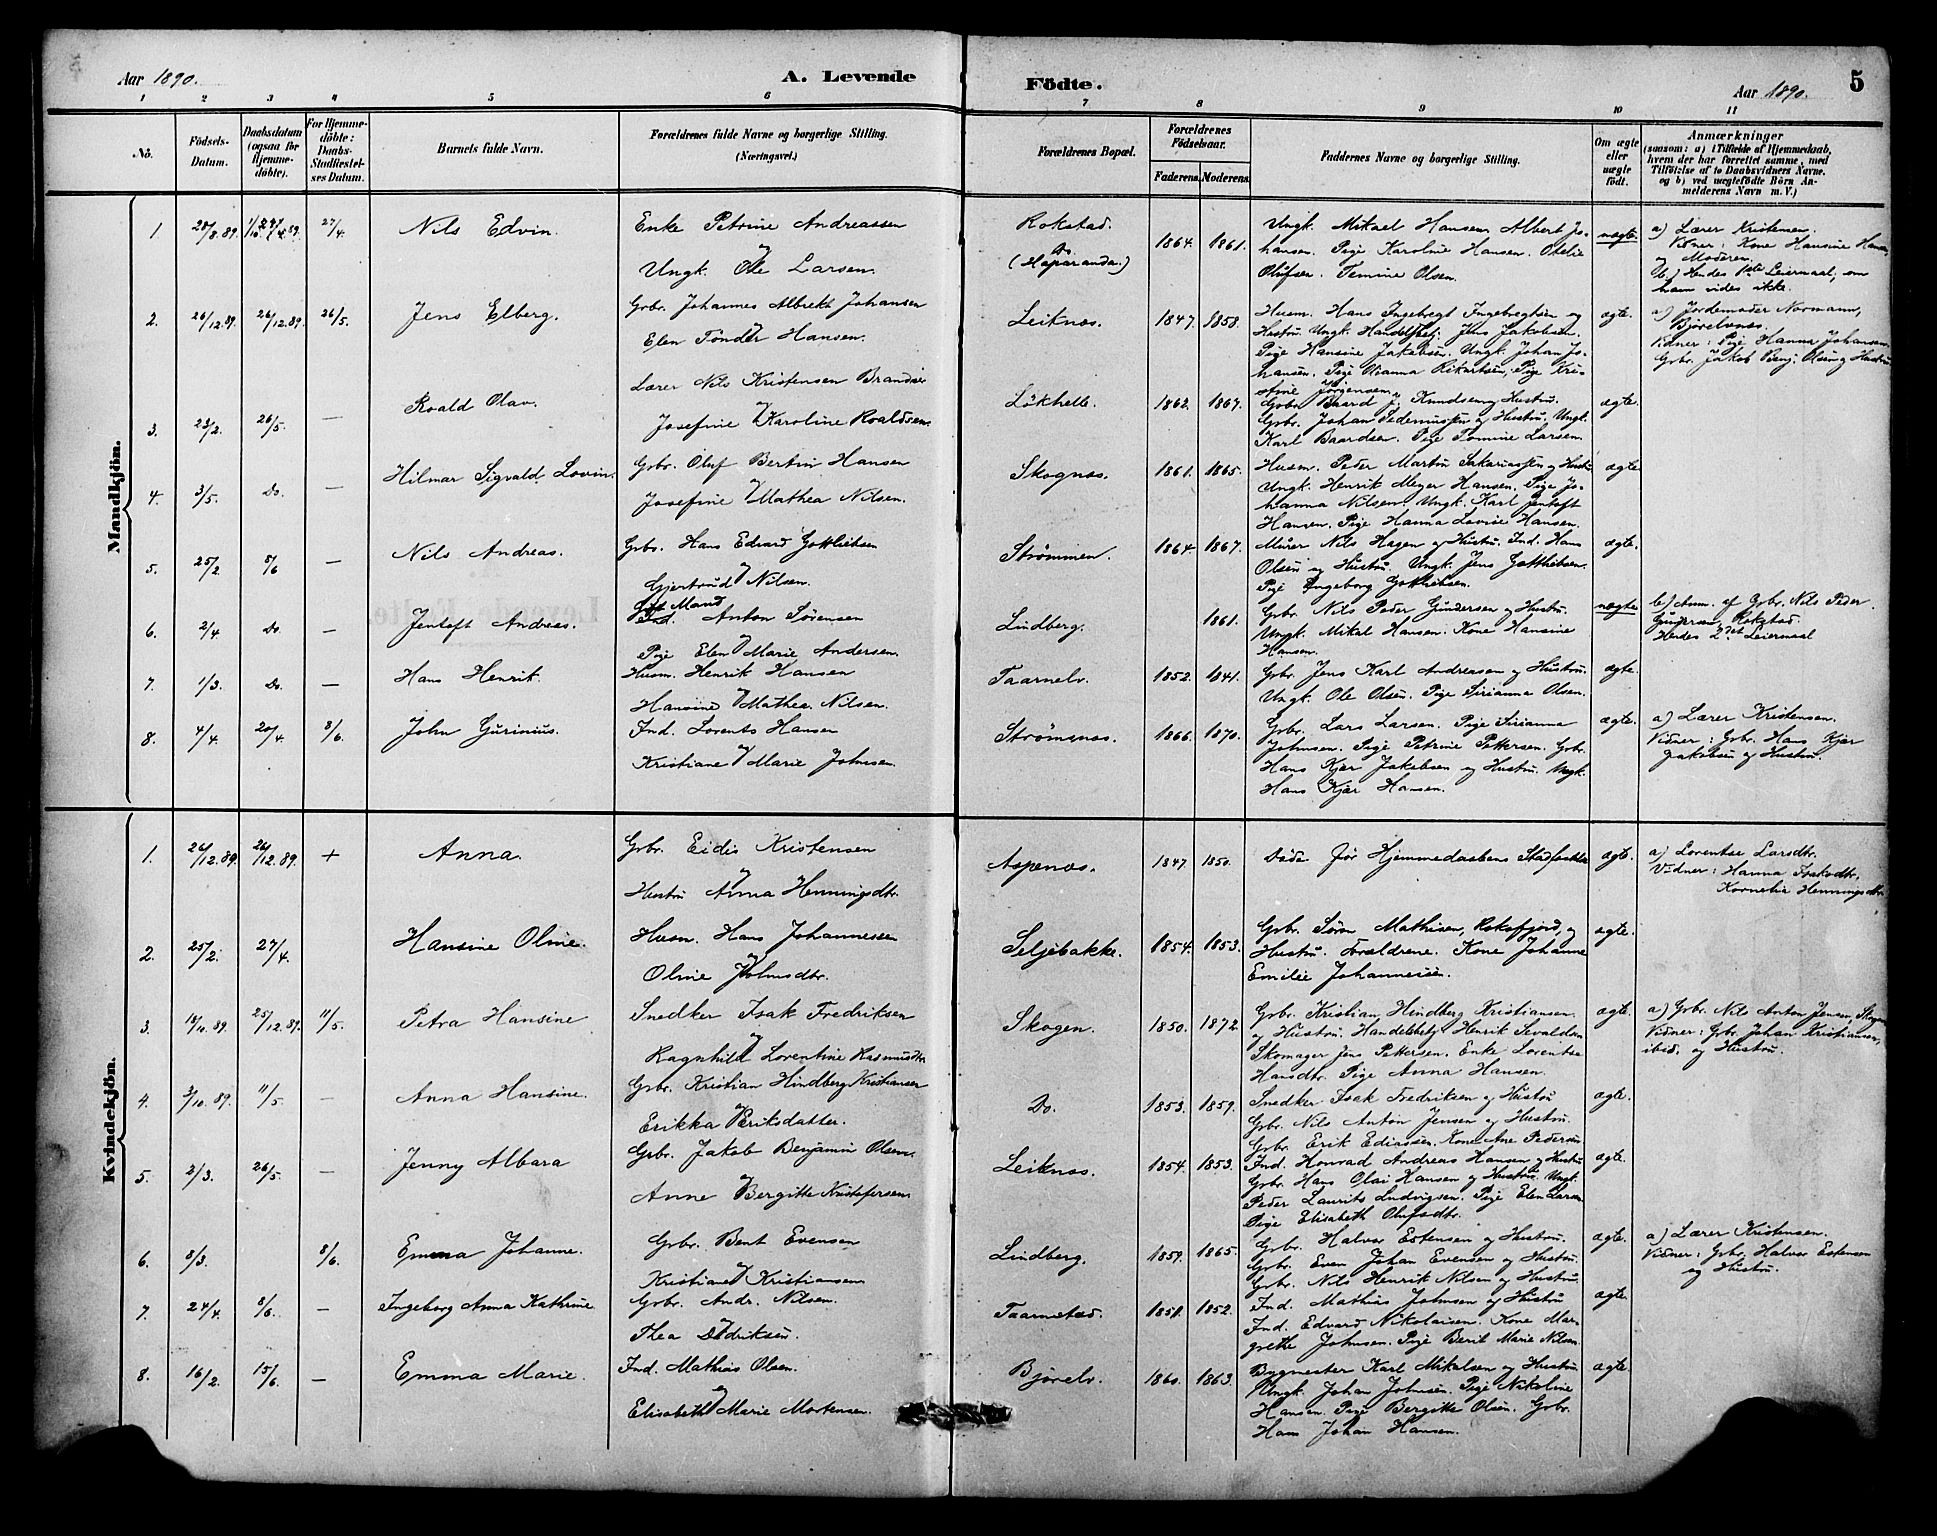 Aar 1890.
A. Levende
Födte.
Aar 1890.
5
1 2 3 4 5 6 7 8 9 10 11
No.
Födsels-
Datum.
Daabsdatum
(ogsaa for
Hjemme-
döbte).
For Hjemme-
döbte:
Daabs-
Stadfæstel-
ses Datum.
Barnets fulde Navn.
Forældrenes fulde Navne og borgerlige Stilling.
(Næringsvei.)
Forældrenes Bopæl.
Forældrenes
Födselsaar.
Faderens. Moderens.
Faddernes Navne og borgerlige Stilling.
Om ægte
eller
uægte
födt.
Anmærkninger
(saasom: a) i Tilfælde af Hjemmedaab,
hvem der har forrettet samme, med
Tilföielse af to Daabsvidners Navne.
og b) ved uægtefödte Börn An-
melderens Navn m. V.)
Mandkjön.
1
28/8.89.
27/4.
Nils Edvin.
Enke Petrine Andreassen
Ungk. Ole Larsen.
Rokstad.
Do.
(Haparanda.)
1864. 1861.
Ungk. Mikael Hansen. Albert Jo-
hansen. Pige Karoline Hansen. Okelie
Olufsen. Temine Olsen.
uægte
a) Lærer Kristensen.
Vidner: Kone Hansine Hansen,
og Moderen.
b) Hendes 1ste Leiermaal, om
ham vides ikke.
2.
26/12.89. 26/12.89. 26/5.
Jens Elberg.
Grbr. Johannes Albrekt Johansen
Elen Tönder Hansen.
Leiknes.
1847. 1858.
Husm. Hans Ingebregt Ingebregtsen og
Hustru. Ungk. Handelsbetj. Jens Jakobsen.
Pige Hansine Jakobsen. Ungk. Johan Jo-
hansen. Pige Vianna Rikartsen, Pige Kri-
stine Jörgensen.
ægte.
a) Jordemoder Normann,
Björelvnes.
Vidner: Pige Hanna Johansen
Grbr. Jakob Benj. Olsen og Hustru
3.
23/2. 26/5. —
Roald Olav.
Lærer Nils Kristensen Brandser
Josefine Karoline Roaldsen.
Lökhelle.
1862. 1867.
Grbr. Baard J. Knudsen og Hustru.
Grbr. Johan Pederinussen og Hustru. Ungk.
Karl Baardsen. Pige Tomine Larsen.
ægte.
4.
3/5. Do. —
Hilmar Sigvald Lovin.
Grbr. Oluf Bertin Hansen
Josefine Mathea Nilsen.
Skognes.
1861. 1865.
Husm. Peder Martin Sakariassen og Hustru
Ungk. Henrik Meyer Hansen. Pige Jo-
hanna Nilsen. Ungk. Karl Jentoft
Hansen. Pige Hanna Lovise Hansen.
ægte
5.
25/2. 8/6 —
Nils Andreas.
Grbr. Hans Edvard Gottliebsen
Gjertrud Nilsen.
Strömmen.
1864. 1867.
Murer Nils Hagen og Hustru. Ind. Hans
Olsen og Hustru. Ungk. Jens Gottliebsen.
Pige Ingeborg Gottliebsen.
ægte.
6.
2/4. Do. —
Jentoft Andreas.
Gift Mand
Ind. Anton Sörensen
Pige Elen Marie Andersen.
Lindberg.
1861.
Grbr. Nils Peder Gundersen og Hustru.
Ungk. Mikal Hansen. Kone Hansine
Hansen.
uægte
b) Anm. af Grbr. Nils Peder
Gundersen, Rokstad.
Hendes 2det Leiermaal
7.
1/3. Do. —
Hans Henrik.
Husm. Henrik Hansen
Hansine Mathea Nilsen.
Taarnelv.
1852. 1841.
Grbr. Jens Karl Andreasen og Hustru.
Ungk. Ole Olsen. Pige Sirianna Olsen.
ægte.
8.
4/4. 20/4. 8/6.
John Gurinius.
Ind. Lorents Hansen
Kristiane Marie Johnsen.
Strömsnes.
1866. 1870.
Grbr. Lars Larsen. Pige Sirianna
Johnsen. Pige Petrine Pettersen. Grbr.
Hans Kjær Jakobsen og Hustru. Ungk.
Hans Kjær Hansen.
ægte.
a) Lærer Kristensen.
Vidner: Grbr. Hans Kjær
Jakobsen og Hustru.
Kvindekjön.
1.
26/12.89. 26/12.89. +
Anna.
Grbr. Eidis Kristensen
Hustru Anna Henningsdtr.
Aspenes.
1847. 1850.
Döde för Hjemmedaabens Stadfæstelse
ægte.
a) Lorentse Larsdtr.
Vidner: Hanna Isaksdtr.
Kornelia Henningsdtr.
2.
25/2. 27/4.
Hansine Oline.
Husm. Hans Johannessen
Oline Johnsdtr.
Seljebakke.
1854. 1853.
Grbr. Sörn Mathisen, Roksfjord, og
Hustru. Forældrene. Kone Johanne
Emilie Johannesen.
ægte.
3.
25/12.89. 11/5.
Petra Hansine
Snedker Isak Fredriksen
Ragnhild Lorentine Rasmusdtr
Skogen.
1850. 1872.
Grbr. Kristian Hindberg Kristiansen
og Hustru. Handelsbetj. Henrik Sevaldsen
Skomager Jens Pettersen. Enke Lorentse
Hansdtr. Pige Anna Hansen.
ægte.
a) Grbr. Nils Anton Jensen, Skogen
Vidner: Grbr. Johan Kristiansen,
ibid. og Hustru.
4.
3/10.89. 11/5. —
Anna Hansine.
Grbr. Kristian Hindberg Kristiansen
Erikka Eriksdatter.
Do.
1853. 1859.
Snedker Isak Fredriksen og Hustru
Grbr. Nils Anton Jensen og Hustru.
Grbr. Erik Ediassen. Kone Ane Pedersen
ægte.
5.
2/3. 26/5. —
Jenny Albara
Grbr. Jakob Benjamin Olsen.
Anne Bergitte Kristofersen
Leiknes.
1854. 1853.
Ind. Konrad Andreas Hansen og Hustru
Grbr. Hans Olai Hansen og Hustru. Ungk.
Peder Laurits Ludvigsen. Pige Elen Larsen
Pige Elisabeth Olufsdtr.
ægte.
6.
8/3. 8/6.
Emma Johanne.
Grbr. Bent Evensen
Kristiane Kristiansen
Lindberg.
1859. 1865.
Grbr. Halvor Estensen og Hustru.
Grbr. Even Johan Evensen og Hustru.
Grbr. Nils Henrik Nilsen og Hustru.
ægte.
a) Lærer Kristensen.
Vidner: Grbr. Halvor Estensen
og Hustru.
7.
24/4. 8/6. —
Ingeborg Anna Kathrine
Grbr. Andr. Nilsen.
Thea Didriksen.
Taarnstad.
1851. 1852.
Ind. Mathias Johnsen og Hustru
Ind. Edvard Nikolaisen. Kone Mar-
grethe Johnsen. Pige Berit Marie Nilsen
ægte.
8.
16/2. 15/6. —
Emma Marie.
Ind. Mathias Olsen.
Elisabeth Marie Mortensen.
Björelv.
1860. 1863.
Bygmester Karl Mikalsen og Hustru
Ungk. Johan Johnsen. Pige Nikoline
Hansen. Pige Bergitte Olsen. Grbr.
Hans Johan Hansen.
ægte.